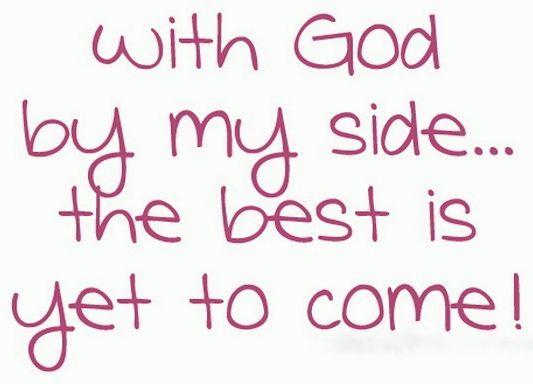 with God
by my side...
the best is
yet to come!